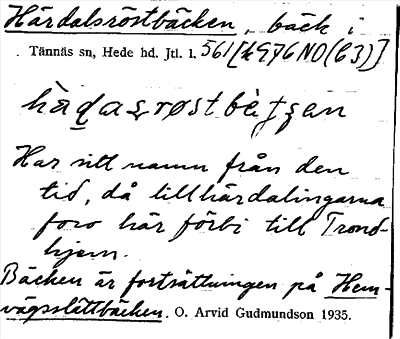 Härdalsröstbäcken, bäck i
Tännäs sn, Hede hd. Jtl. l. 561 [k 976 NO (C3)]
Har sitt namn från den
tid, då lillhärdalingarna
foro här förbi till Trond-
hjem.
Bäcken är fortsättningen på Hem-
vägsslåttbäcken. O. Arvid Gudmundson 1935.